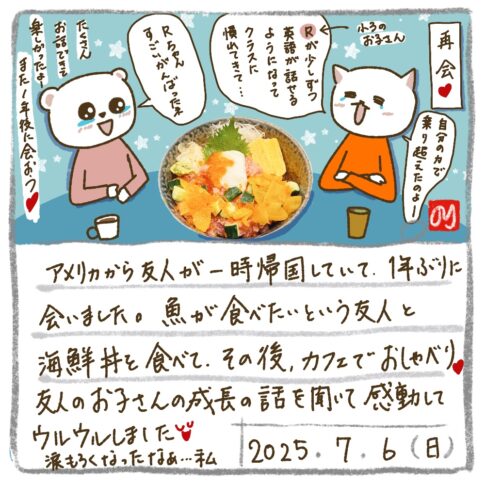 再会♥
ふろのお子さん
Rが少しずつ
英語が話せる
ようになって
クラスに
慣れてきて…
自分の力で
乗り越えたのよー
Rちゃん
すごいがんばったネ
たくさん
お話できて
楽しかったよ
また1年後に会おう♥
アメリカから友人が一時帰国していて、1年ぶりに
会いました。魚が食べたいという友人と
海鮮丼を食べて、その後、カフェでおしゃべり♥
友人のお子さんの成長の話を聞いて感動して
ウルウルしました♥
涙もろくなったなぁ…私
2025.7.6(日)